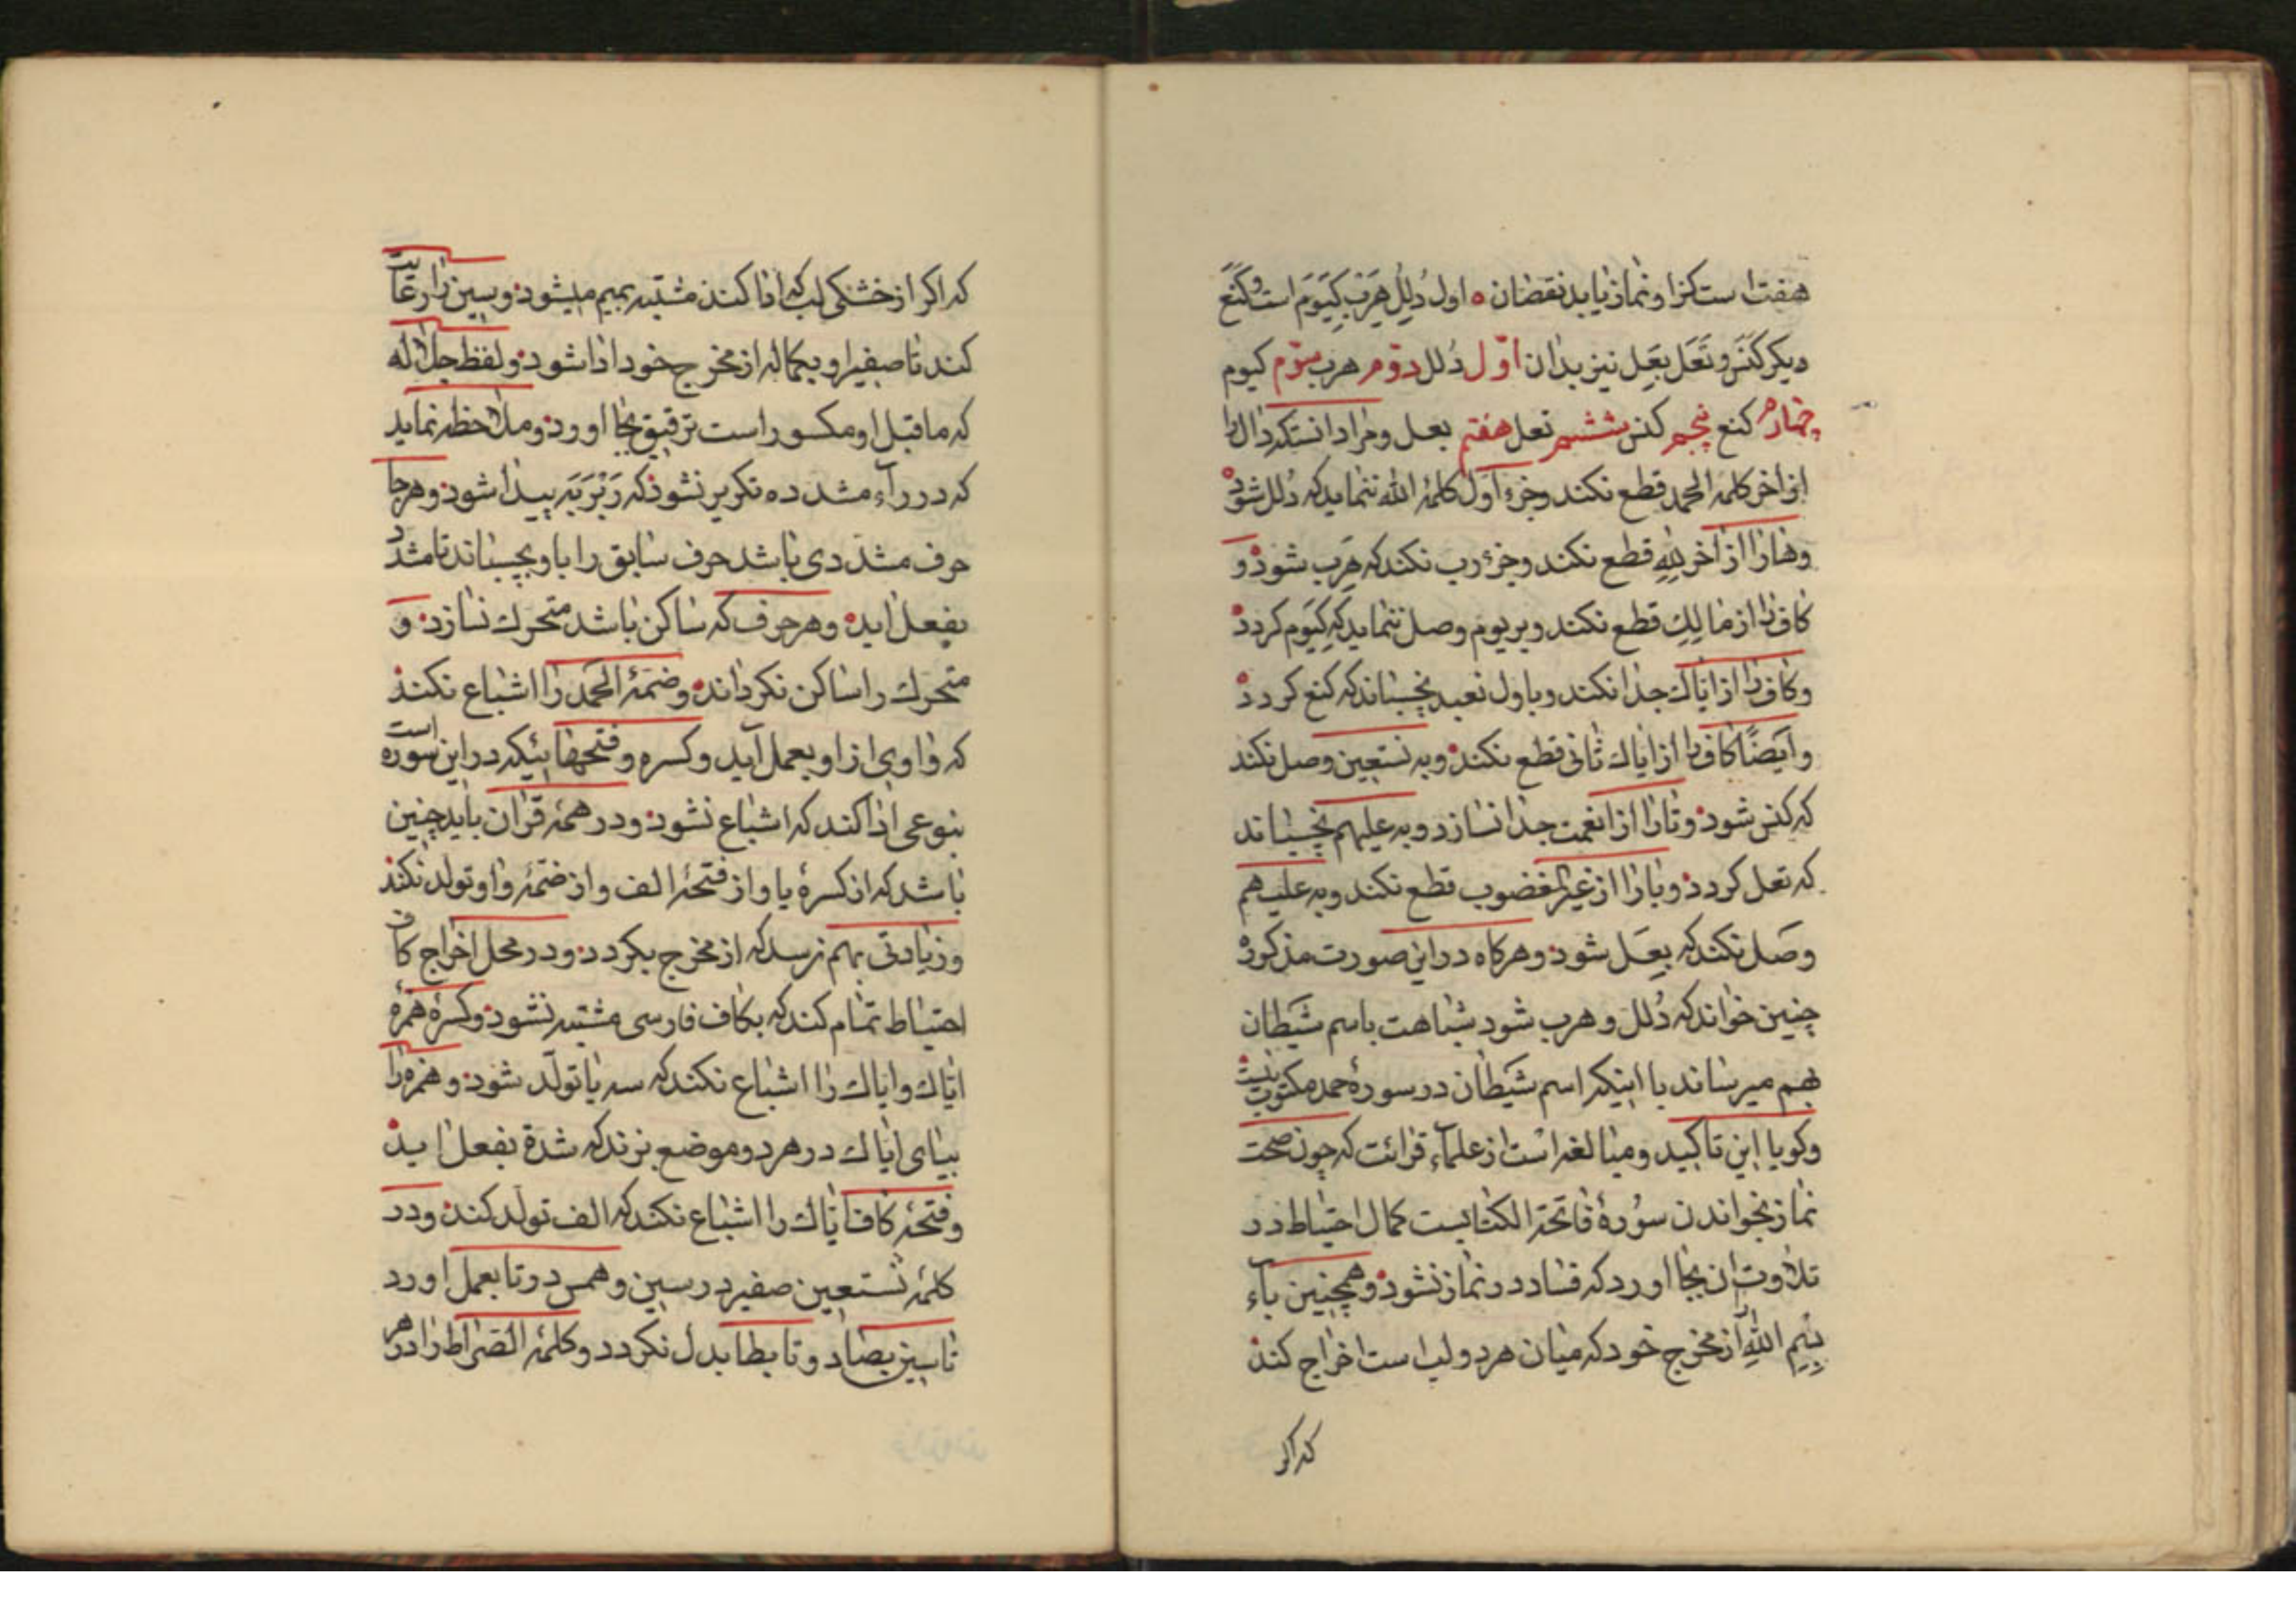 هفت است کزا و نماز یابد نقصان ۰ اول دُلِلْ هِرَبْ کِیَوْمَ است و کَنَعْ
دیکر کَنَسْ و تَعَل بِعَل نیز بدان اوّل دُلل دوّم هرب سوّم کیوم
چهارم کنع پنجم کنس ششم تعل هفتم بعل و مراد انستکه دال را
از اخر کلمۀ الحمد قطع نکند و جزء اول کلمۀ الله ننماید که دُلل شود
وها را از اخر لِلّٰهِ قطع نکند و جزء رب نکند که هِرَب شود و
کاف را از مالِكِ قطع نکند و بر یوم وصل ننماید که کِیَوم کردد
و کاف را از ایاك جدا نکند و باول نعبد نچسباند که کنع کردد
و ایضًا کاف را از ایاك ثانی قطع نکند و به نستعین وصل نکند
که کنس شود و تا را از انعمت جدا نسازد و به علیهم نچسباند
که تعل کردد و با را از غیر المغضوب قطع نکند و به علیهم
وصل نکند که بِعَل شود و هرکاه در این صورت مذکوره
چنین خواند که دُلل و هرب شود شباهت باسم شیطان
بهم میرساند با اینکه اسم شیطان در سورۀ حمد مکتوب نیست
و کویا این تاکید و مبالغه است از علماء قرائت که چون صحت
نماز بخواندن سورۀ فاتحة الکتابست کمال احتیاط در
تلاوت ان بجا اورد که فساد در نماز نشود و همچنین باء
بِسْمِ اللهِ از مخرج خود که میان هر دو لب است اخراج کند
که اکر
که اکر از خشکی لب که ادا کند مشتبه بمیم میشود و سین را رعایت
کند تا صفیر او بکماله از مخرج خود ادا شود و لفظ جلاله
که ما قبل او مکسور است ترقیق بجا اورد و ملاحظه نماید
که در راء مشدده تکریر نشود که رَبْرَبَه پیدا شود و هرجا
حرف مشدّدی باشد حرف سابق را باو بچسباند تا مشدد
بفعل اید و هر حرف که ساکن باشد متحرك نسازد و
متحرك را ساکن نکرداند و ضمّۀ الحمد را اشباع نکند
که واوی از او بعمل آید و کسره و فتحهائیکه در این سوره است
بنوعی ادا کند که اشباع نشود و در همۀ قران باید چنین
باشد که از کسرۀ یا و از فتحۀ الف و از ضمّۀ واو تولد نکند
و زیادتی بهم نرسد که از مخرج بکردد و در محل اخراج کاف
احتیاط تمام کند که بکاف فارسی مشتبه نشود و کسرۀ همزۀ
ایّاك و ایاك را اشباع نکند که سه یا تولّد شود و همزه را
بیای ایاك در هر دو موضع بزند که شدة بفعل اید
و فتحۀ کاف ایاك را اشباع نکند که الف تولد کند و در
کلمۀ نستعین صفیر در سین و همس در تا بعمل اورد
تا سین بصاد و تا بطا بدل نکردد و کلمۀ الصراط را در هر